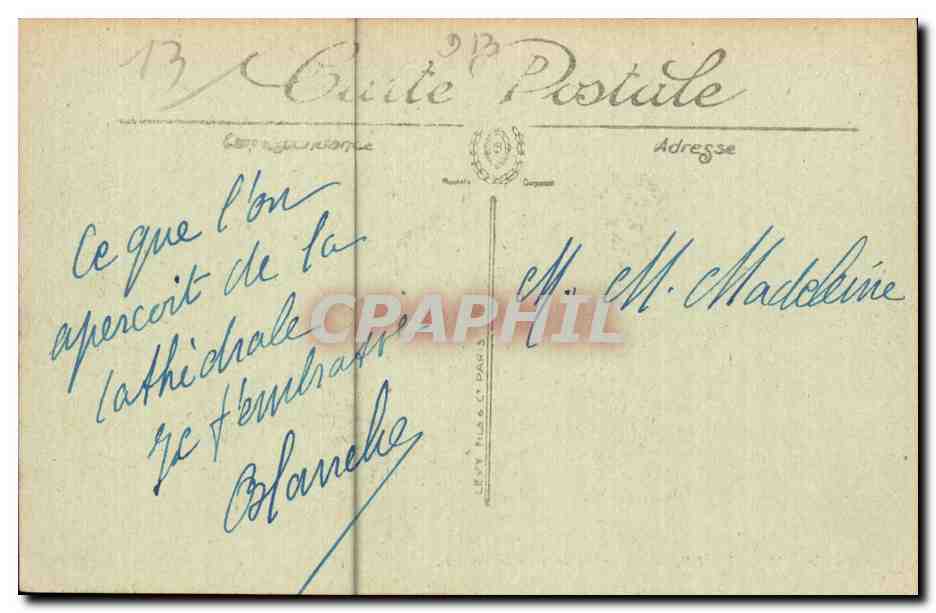 13
13
Carte Postale
Correspondance
Adresse
Ce que l'on
apercoit de la
cathédrale
Je t'embrasse
Blanche
M. M. Madeleine
CPAPHIL
LEVY FILS & Cie PARIS